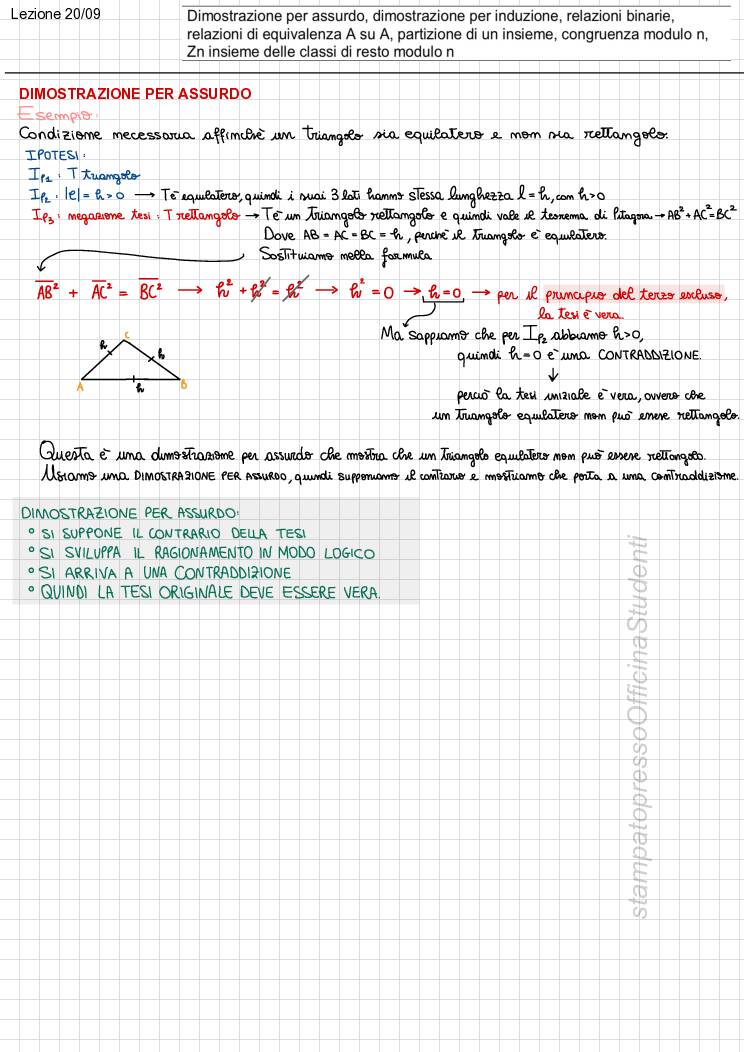 Lezione 20/09
Dimostrazione per assurdo, dimostrazione per induzione, relazioni binarie,
relazioni di equivalenza A su A, partizione di un insieme, congruenza modulo n,
Zn insieme delle classi di resto modulo n
DIMOSTRAZIONE PER ASSURDO
Esempio:
Condizione necessaria affinché un triangolo sia equilatero e non sia rettangolo.
IPOTESI:
Ip1 : T triangolo
Ip2 : |e| = h > 0 → T è equilatero, quindi i suoi 3 lati hanno stessa lunghezza l = h, con h>0
Ip3 : negazione tesi : T rettangolo → T è un triangolo rettangolo e quindi vale il teorema di Pitagora → AB² + AC² = BC²
Dove AB = AC = BC = h, perché il triangolo è equilatero.
Sostituiamo nella formula
AB² + AC² = BC² → h² + h² = h² → h² = 0 → h = 0 → per il principio del terzo escluso,
la tesi è vera.
Ma sappiamo che per Ip2 abbiamo h>0,
quindi h = 0 è una CONTRADDIZIONE.
perciò la tesi iniziale è vera, ovvero che
un triangolo equilatero non può essere rettangolo.
C
h h
A h B
Questa è una dimostrazione per assurdo che mostra che un triangolo equilatero non può essere rettangolo.
Usiamo una DIMOSTRAZIONE PER ASSURDO, quindi supponiamo il contrario e mostriamo che porta a una contraddizione.
DIMOSTRAZIONE PER ASSURDO:
° SI SUPPONE IL CONTRARIO DELLA TESI
° SI SVILUPPA IL RAGIONAMENTO IN MODO LOGICO
° SI ARRIVA A UNA CONTRADDIZIONE
° QUINDI LA TESI ORIGINALE DEVE ESSERE VERA.
stampatopressoOfficinaStudenti